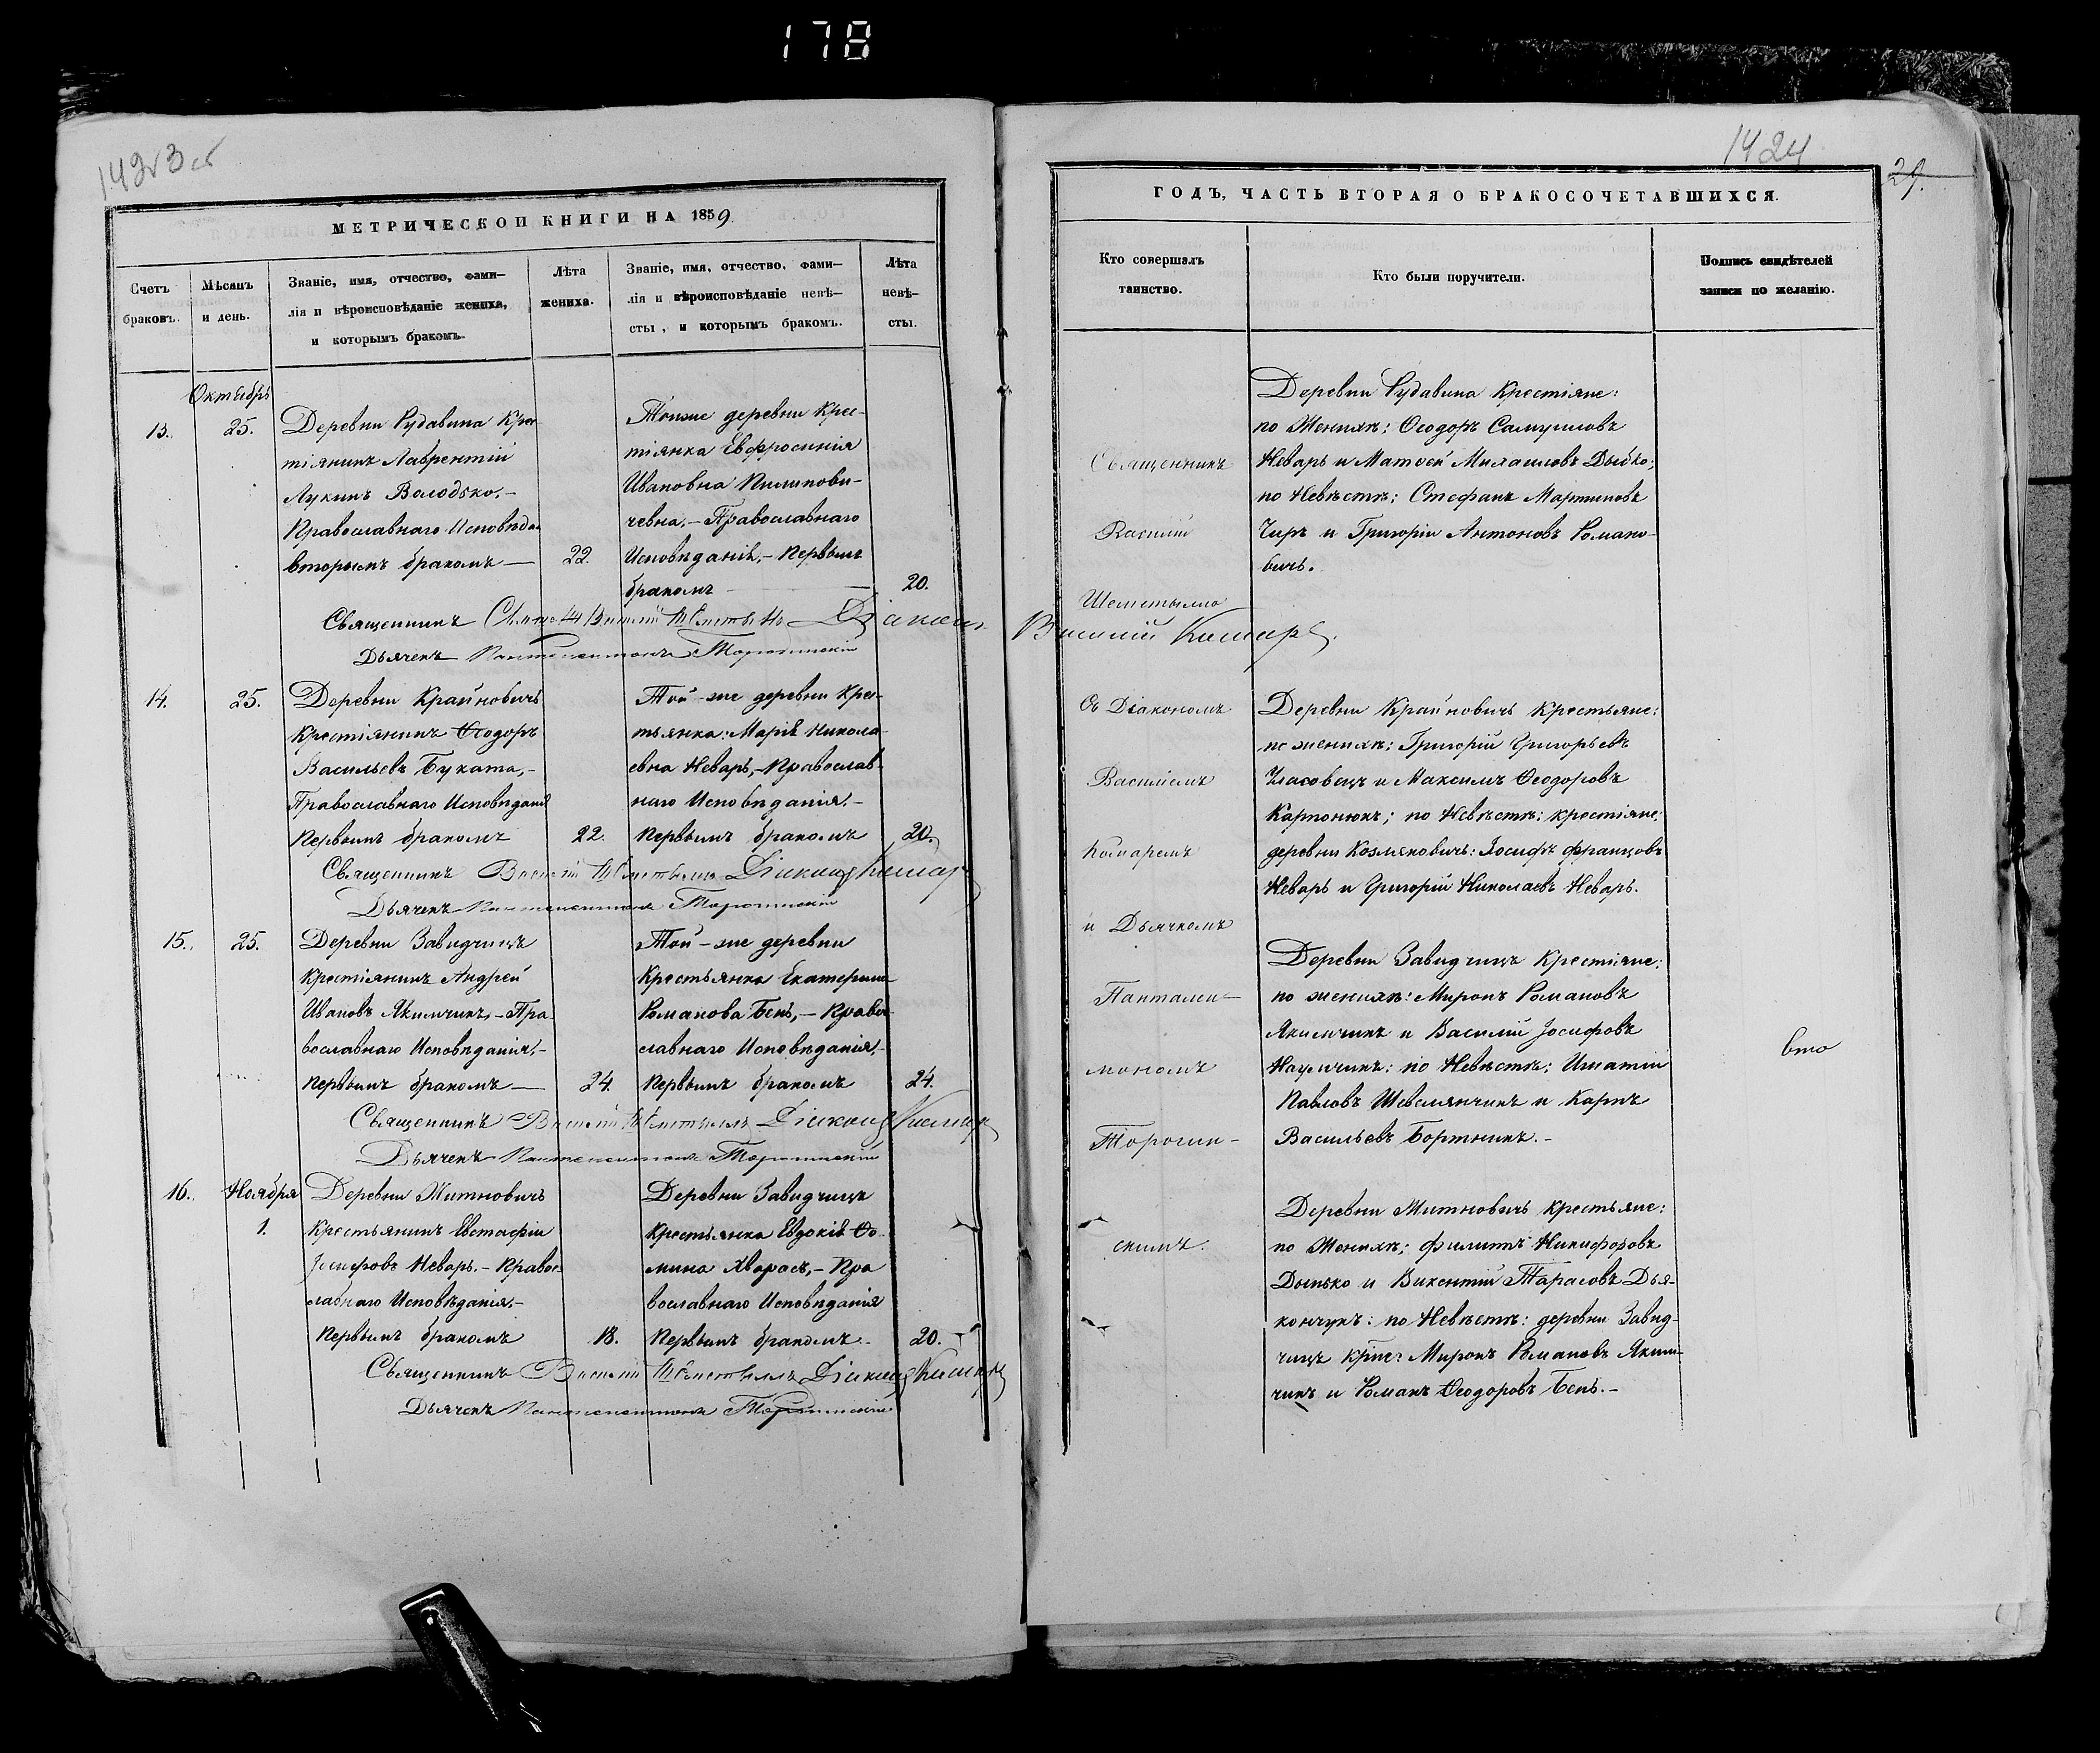 178
1423об
МЕТРИЧЕСКОЙ КНИГИ НА 1859
Счетъ
браковъ.
Мѣсяцъ
и день.
Званіе, имя, отчество, фами—
лія и вѣроисповѣданіе жениха,
и которымъ бракомъ.
Лѣта
жениха.
Званіе, имя, отчество, фами—
лія и вѣроисповѣданіе невѣ—
сты, и которымъ бракомъ.
Лѣта
невѣ—
сты.
Октябрь
13.
25.
Деревни Рудавина Крес
тіянинъ Лаврентій
Лукинъ Володько,-
Православнаго Исповѣда
вторымъ бракомъ —
22.
Тойже деревни Крес-
тіянка Евфросинія
Ивановна Пилипови-
чевна,- Православнаго
Исповѣданія,- Первымъ
бракомъ —
20.
Священникъ Василій Шеметылло Діаконъ
Дьячекъ Пантелеимонъ Торошинскій
14.
25.
Деревни Крайновичъ
Крестіянинъ Ѳеодоръ
Васильевъ Буката,-
Православнаго Исповѣданія
Первымъ бракомъ
22.
Той-же деревни Крес-
тьянка: Марія Никола-
евна Неваръ,- Православ-
наго Исповѣданія,-
Первымъ бракомъ
20.
Священникъ Василій Шеметылло Діаконъ Комаръ
Дьячекъ Пантелеимонъ Торошинскій
15.
25.
Деревни Завидчицъ
Крестіянинъ Андрей
Ивановъ Якимчикъ,- Пра-
вославнаго Исповѣданія,-
Первымъ бракомъ —
24.
Той-же деревни
Крестьянка Екатерина
Романова Бень,- Право-
славнаго Исповѣданія,-
Первымъ бракомъ
24.
Священникъ Василій Шеметылло Діаконъ Комаръ
Дьячекъ Пантелеимонъ Торошинскій
16.
Ноября
1.
Деревни Житновичъ
Крестьянинъ Евстафій
Іосифовъ Неваръ.- Правос
лавнаго Исповѣданія,-
Первымъ бракомъ
18.
Деревни Завидчицъ
Крестьянка Евдокія Ѳо-
мина Хворось,- Пра
вославнаго Исповѣданія
Первымъ бракомъ.
20.
Священникъ Василій Шеметылло Діаконъ Комаръ
Дьячекъ Пантелеимонъ Торошинскій
1424
29.
ГОДЪ, ЧАСТЬ ВТОРАЯ О БРАКОСОЧЕТАВШИХСЯ.
Кто совершалъ
таинство.
Кто были поручители.
Подпись свидѣтелей
записи по желанію.
Священникъ
Василій
Шеметылло
Василій Комаръ.
Съ Діакономъ
Василіемъ
Комаремъ
и Дьячкомъ
Панталеи-
мономъ
Торошин-
скимъ.
Деревни Рудавина Крестіяне:
по Женихѣ: Ѳеодоръ Самуиловъ
Неваръ и Матѳей Михаиловъ Дыбко;
по Невѣстѣ: Стефанъ Мартиновъ
Чиръ и Григорій Антоновъ Романо-
вичъ.
Деревни Крайновичъ Крестьяне:
по женихѣ: Григорій Григорьевъ
Часовецъ и Максимъ Ѳеодоровъ
Карпонюкъ; по Невѣстѣ: крестіяне;
деревни Козляковичъ: Іосифъ Францовъ
Неваръ и Григорій Николаевъ Неваръ.
Деревни Завидчицъ Крестіяне:
по женихѣ: Миронъ Романовъ
Якимчикъ и Василій Іосифовъ
Наумчикъ: по Невѣстѣ: Игнатій
Павловъ Шевелянчикъ и Карпъ
Васильевъ Бортникъ.-
вто
Деревни Житновичъ крестьяне:
по Женихѣ; Филиппъ Никифоровъ
Дынько и Викентій Тарасовъ Дья-
кончукъ: по Невѣстѣ: деревни Завид-
чицъ крес: Миронъ Романовъ Яким-
чикъ и Романъ Ѳеодоровъ Бень.-